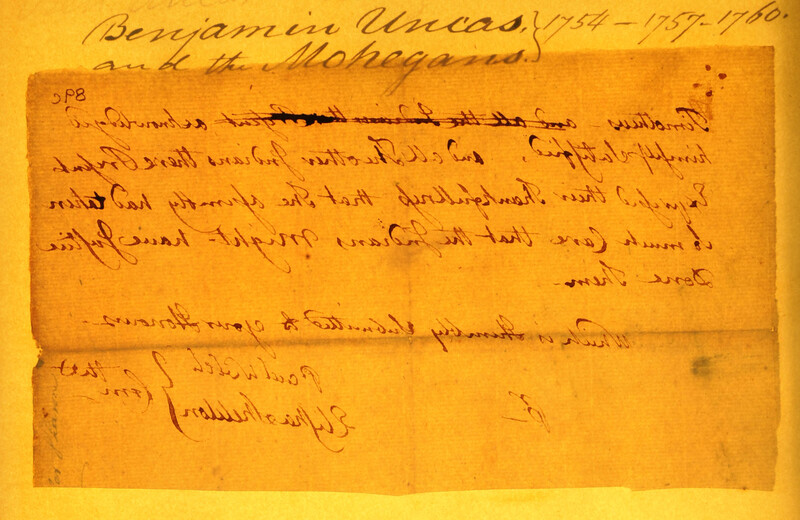 Benjamin Uncas, } 1754 - 1757-1760.
and the Mohegans.
298
Timotheus and all the Indians the Present acknowledged
himself Satisfied, and all The other Indians there Present
Expressed their Thankfullness that The Assembly had taken
so much Care that the Indians Might have Justice
Done Them
Which is Humbly Submitted to your Honours
Paul Welch } Comtee
Elisha Sheldon